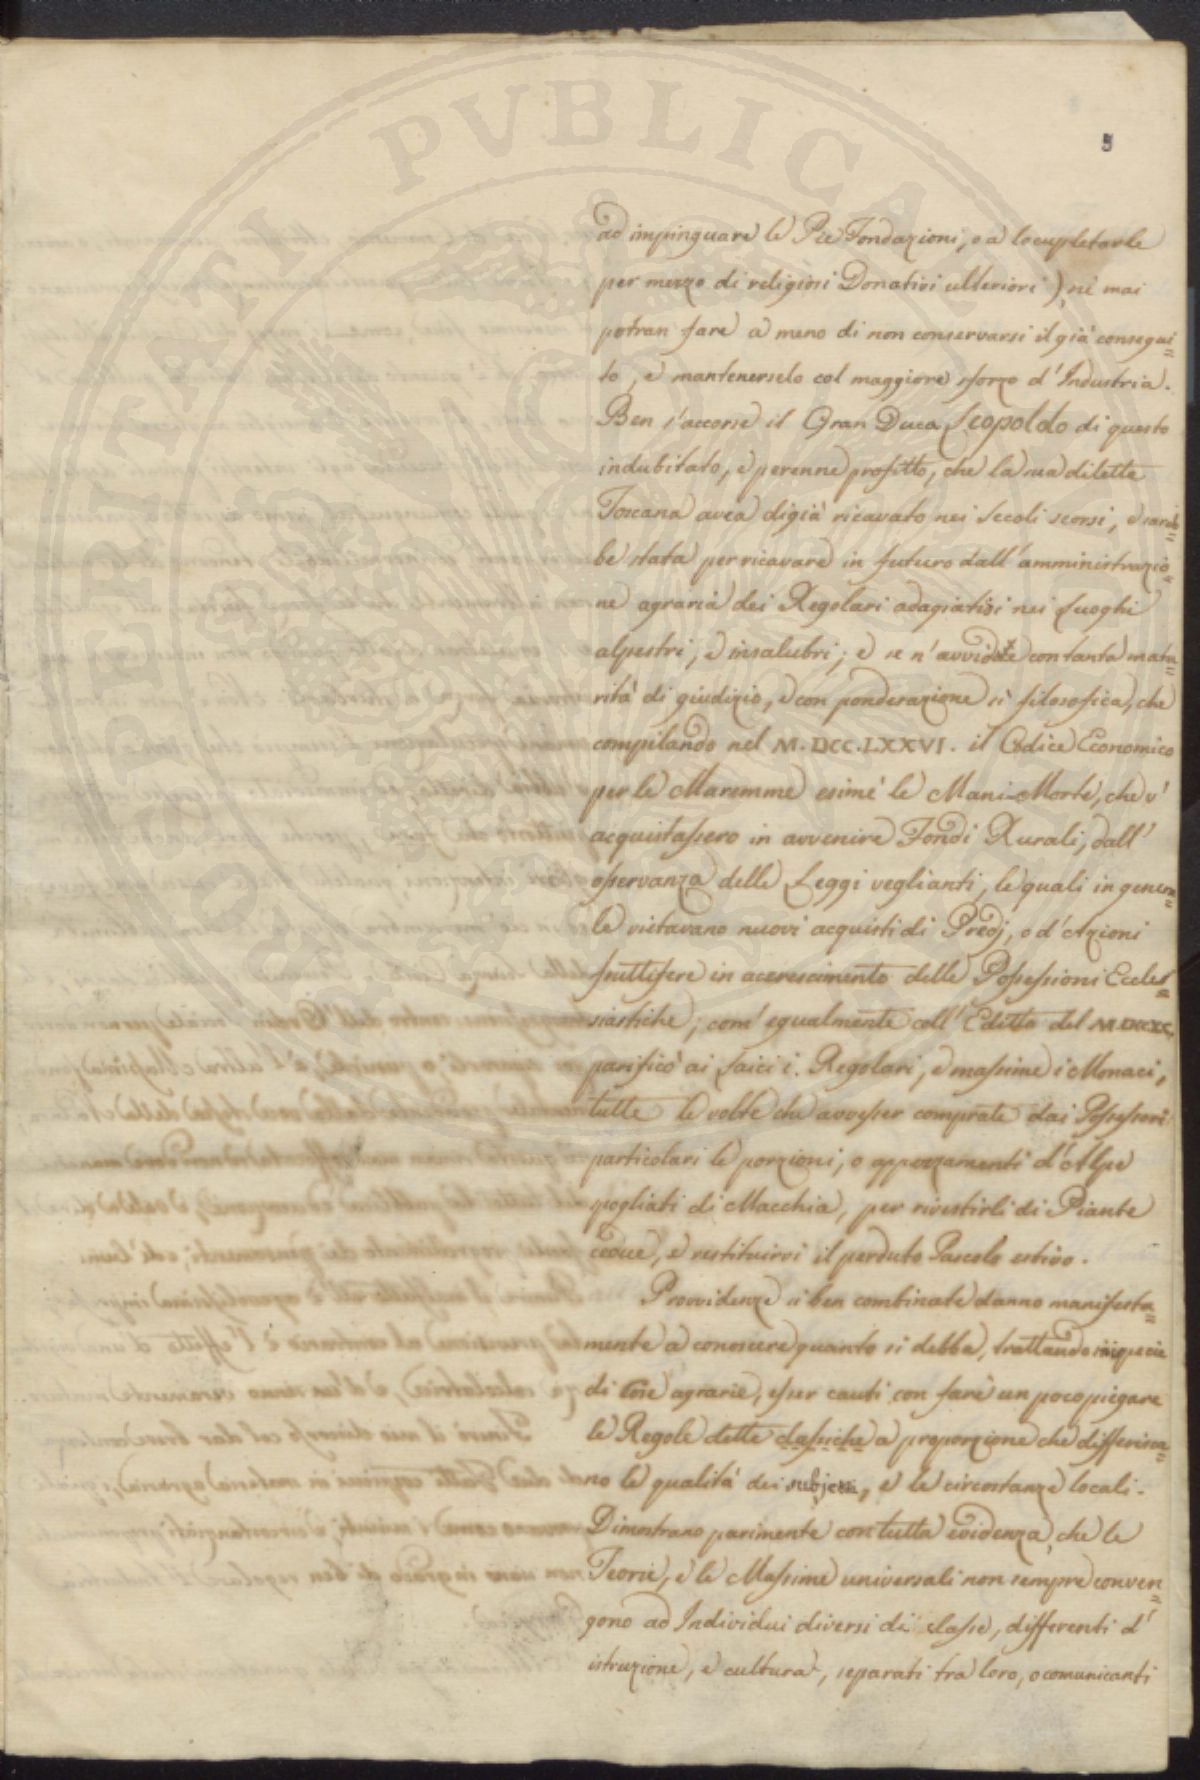 PROSPERITATI PUBLICAE
5
ad impinguare le Pie Fondazioni, o a locupletarle
per mezzo di religiosi Donativi ulteriori), nè mai
potran fare a meno di non conservarsi il già consegui=
to, e mantenerselo col maggiore sforzo d'Industria.
Ben s'accorse il Gran Duca Leopoldo di questo
indubitato, e perenne profitto, che la sua diletta
Toscana avea digià ricavato nei Secoli scorsi, e sareb=
be stata per ricavare in futuro dall'amministrazio=
ne agraria dei Regolari adagiatisi nei Luoghi
alpestri, e insalubri; e se n'avvidde con tanta matu=
rità di giudizio, e con ponderazione sì filosofica, che
compilando nel M.DCC.LXXVI. il Codice Economico
per le Maremme esimè le Mani-Morte, che v'
acquistassero in avvenire Fondi Rurali, dall'
osservanza delle Leggi veglianti, le quali in genera=
le vietavano nuovi acquisti di Predj, o d'Azioni
fruttifere in accrescimento delle Possessioni Eccle=
siastiche; com'egualmente coll'Editto del
parificò ai Laici i Regolari, e massime i Monaci,
tutte le volte che avesser comprate dai Possessori
particolari le porzioni, o appezzamenti d'Alpe
spogliati di Macchia, per rivestirli di Piante
cedue, e restituirvi il perduto Pascolo estivo.
Provvidenze sì ben combinate danno manifesta=
mente a conoscere quanto si debba, trattando in specie
di cose agrarie, esser cauti con fare un poco piegare
le Regole dette classiche a proporzione che differisca=
no le qualità dei subjetti, e le circostanze locali.
Dimostrano parimente con tutta evidenza, che le
Teorie, e le Massime universali non sempre conven=
gono ad Individui diversi di classe, differenti d'
istruzione, e cultura, separati tra loro, o comunicanti